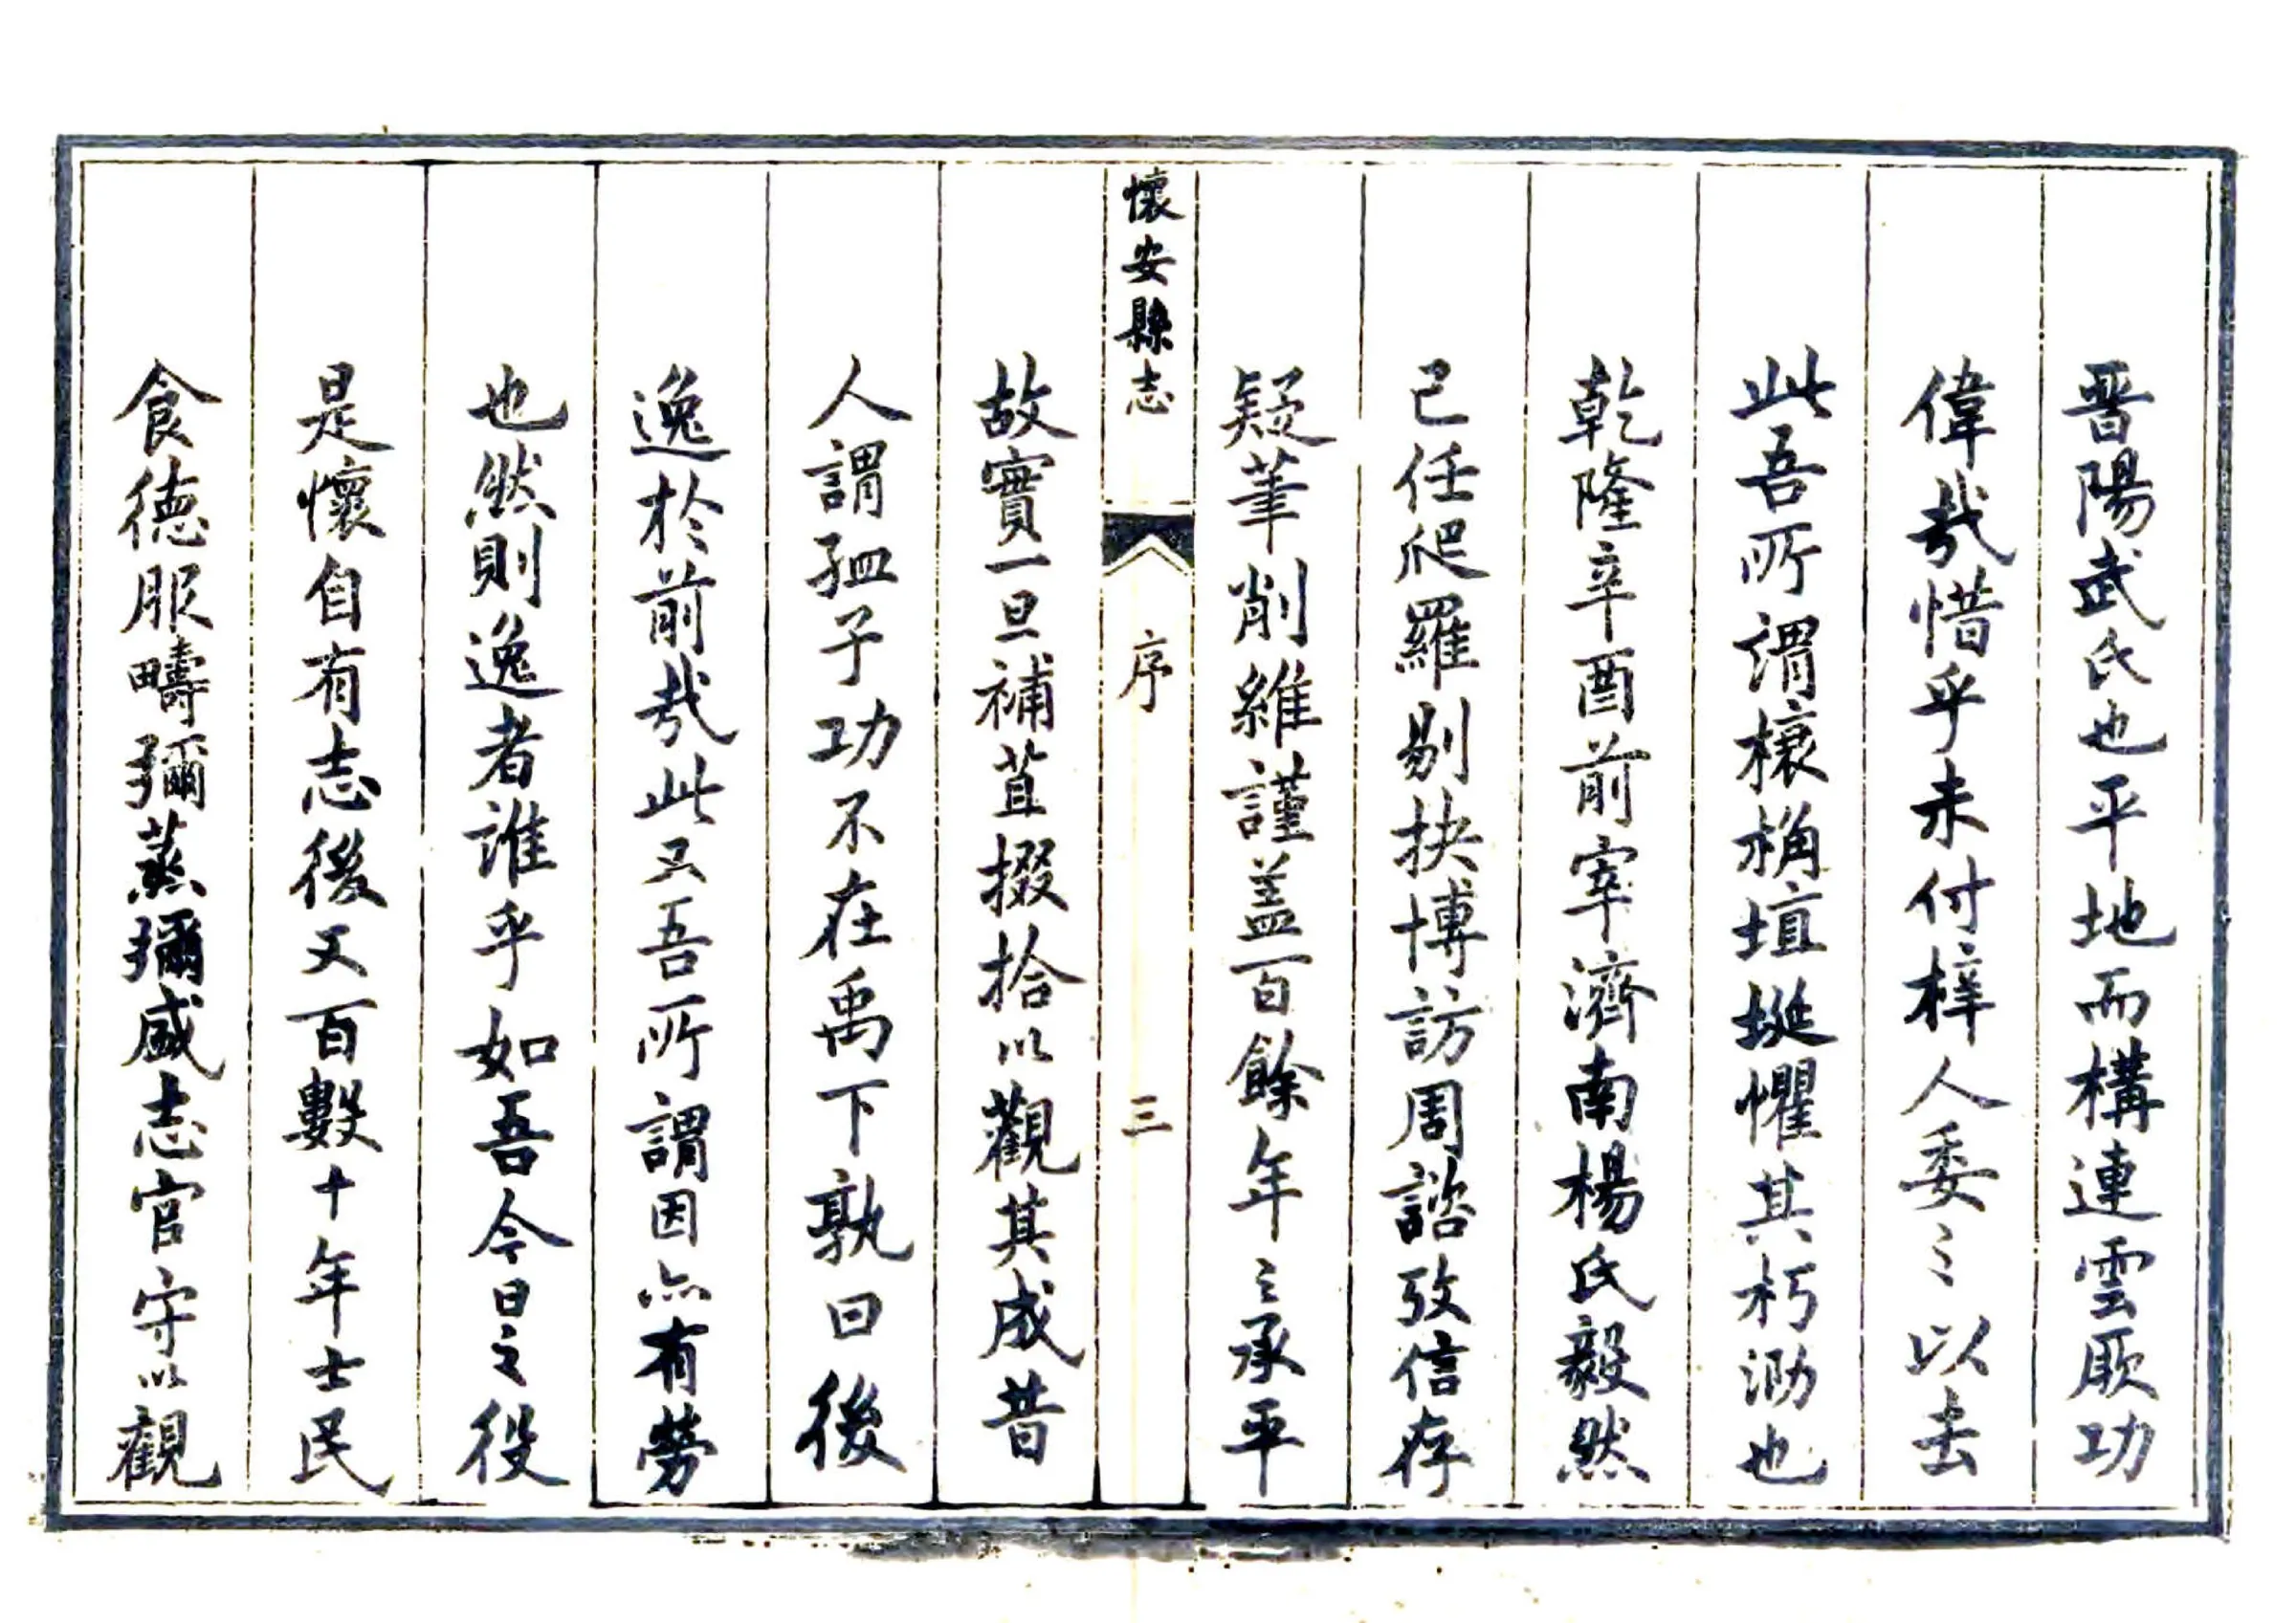 晋陽武氏也平地而構連雲厥功
偉哉惜乎未付梓人委〻以去
此吾所謂榱桷埴埏懼其朽泐也
乾隆辛酉前宰濟南楊氏毅然
己任爬羅剔抉博訪周諮攷信存
疑筆削維謹盖百餘年〻承平
懷安縣志
序
三
故實一旦補苴掇拾以觀其成昔
人謂孟子功不在禹下孰曰後
逸於前哉此又吾所謂因亦有勞
也然則逸者誰乎如吾今日之役
是懷自有志後又百數十年士民
食徳服疇彌蒸彌盛志官守以觀